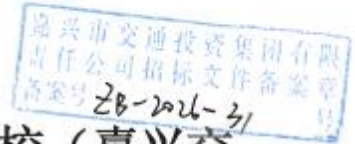 嘉兴市交通投资集团有限
责任公司招标文件备案章
备案号ZB-2026-31号
校（嘉兴交